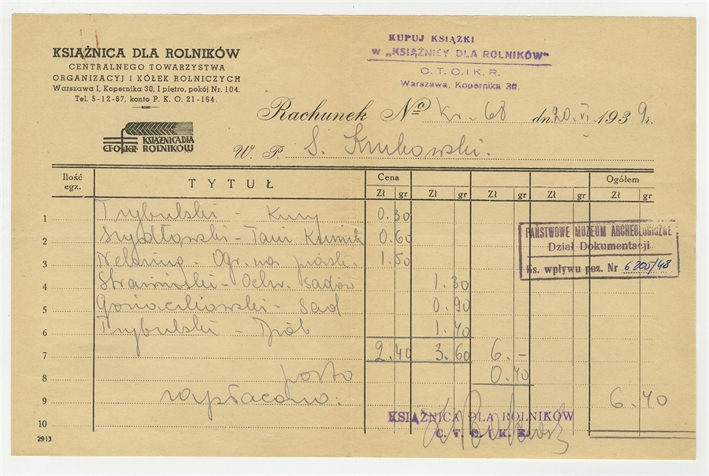 KSIĄŻNICA DLA ROLNIKÓW
CENTRALNEGO TOWARZYSTWA
ORGANIZACYJ I KÓŁEK ROLNICZYCH
Warszawa I, Kopernika 30, I piętro, pokój Nr. 104.
Tel. 5-12-87, konto P. K. O. 21-164.
KUPUJ KSIĄŻKI
w „KSIĄŻNICY DLA ROLNIKÓW"
C. T. O. i K. R.
Warszawa, Kopernika 30.
CTO i KR KSIĄŻNICA DLA ROLNIKÓW
Rachunek No Kr. 68 dn. 20. VI 1939 r.
W. P. S. Krukowski.
Ilość egz. TYTUŁ Cena Ogółem
Zł gr Zł gr Zł gr Zł gr
1 Trybulski - Kury 0.30
2 Szydłowski - Tani Kurnik 0.60
3 Ogr. na 1.50
4 Ochr. sadów 1.30
5 Sad 0.90
6 Trybulski - Drób 1.40
7 2.40 3.60 6.-
8 porto 0.40
9 wypłacono: 6.40
10
PAŃSTWOWE MUZEUM ARCHEOLOGICZNE
Dział Dokumentacji
Ks. wpływu poz. Nr 6205/48
KSIĄŻNICA DLA ROLNIKÓW
C. T. O. i K. R.
2913